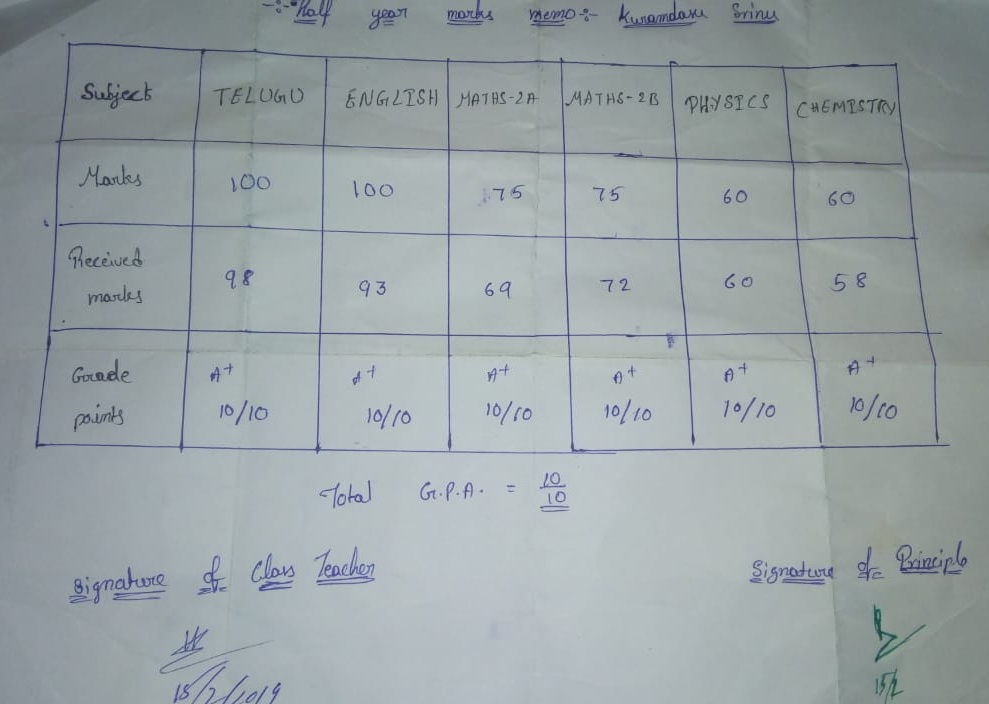 -:- Half year marks memo :- Kuramdasu Srinu
Subject TELUGU ENGLISH MATHS-2A MATHS-2B PHYSICS CHEMISTRY
Marks 100 100 75 75 60 60
Received marks 98 93 69 72 60 58
Grade points A+ 10/10 A+ 10/10 A+ 10/10 A+ 10/10 A+ 10/10 A+ 10/10
Total G.P.A. = 10/10
Signature of Class Teacher Signature of Principle
15/2/2019 15/2